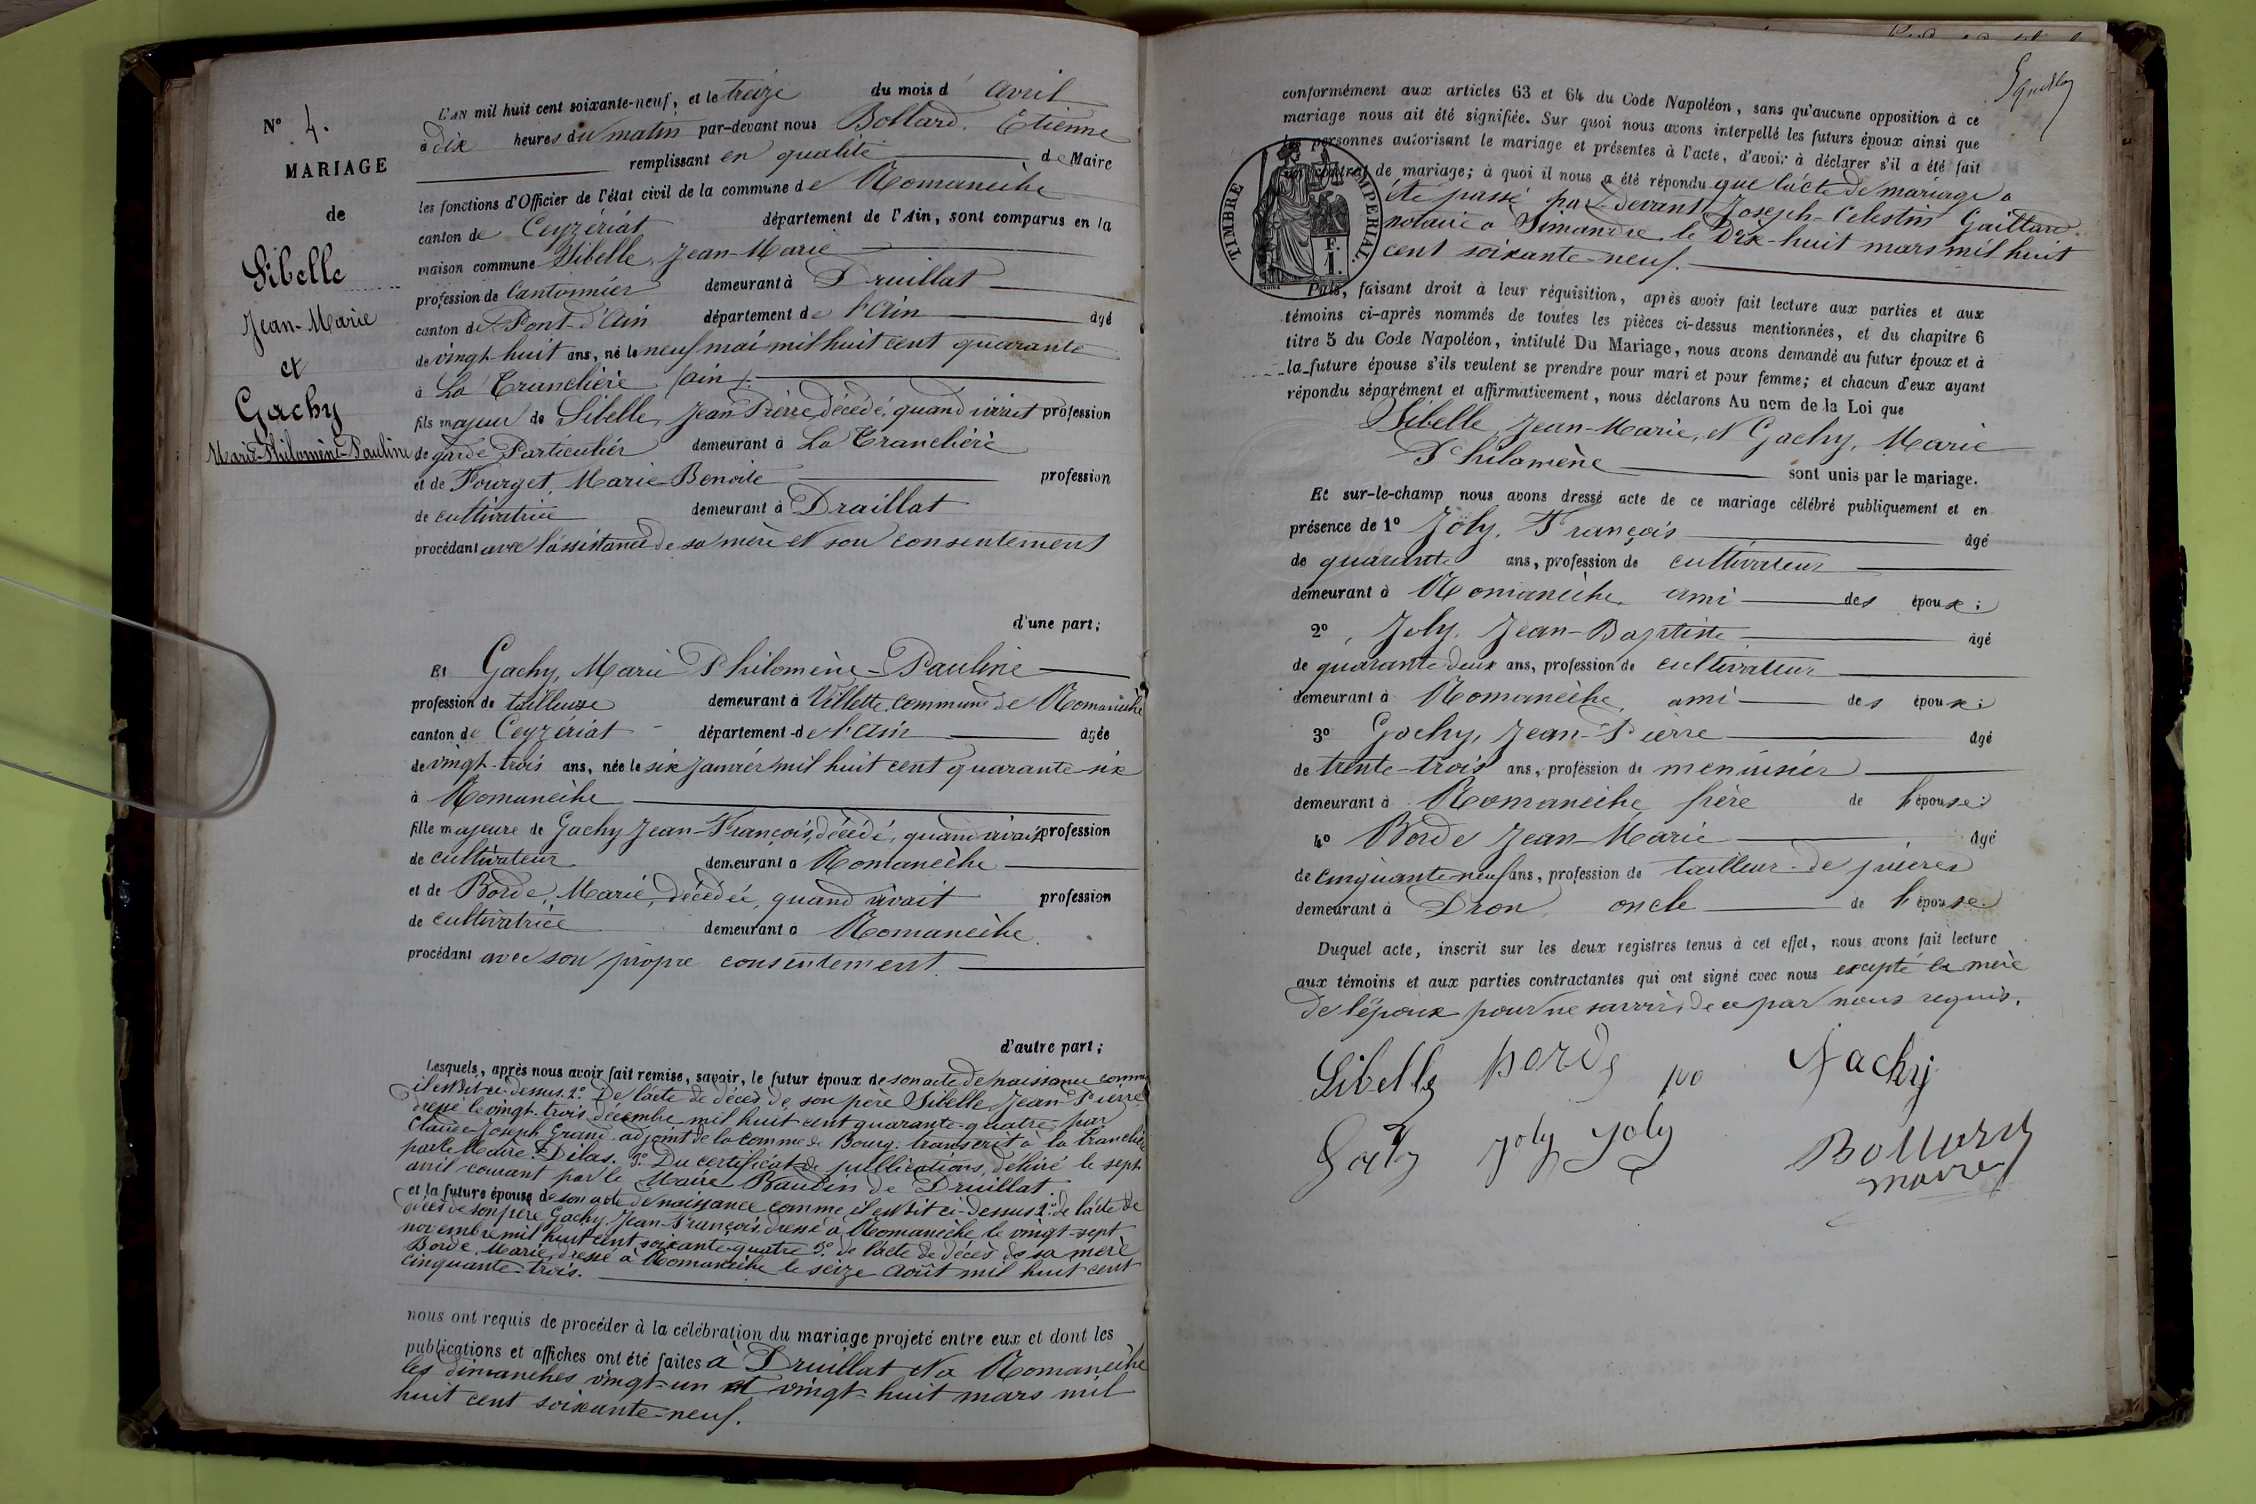 N° 4.
MARIAGE
de
Sibelle
Jean-Marie
et
Gachy
Marie-Philomène-Pauline
L'AN mil huit cent soixante-neuf, et le treize du mois d'avril
à dix heures du matin par-devant nous Bollard, Etienne
remplissant en qualité de Maire
les fonctions d'Officier de l'état civil de la commune de Romanèche
canton de Ceyzériat département de l'Ain, sont comparus en la
maison commune Sibelle, Jean-Marie
profession de Cantonnier demeurant à Druillat
canton de Pont-d'Ain département de l'Ain âgé
de vingt-huit ans, né le neuf mai mil huit cent quarante
à La Tranclière (ain).
fils majeur de Sibelle, Jean Pierre décédé, quand vivait profession
de garde Particulier demeurant à La Tranclière
et de Fourget, Marie Benoite profession
de cultivatrice demeurant à Druillat
procédant avec l'assistance de sa mère et son consentement
d'une part;
Et Gachy, Marie Philomène-Pauline
profession de tailleuse demeurant à Villette, commune de Romanèche
canton de Ceyzériat département de l'Ain âgée
de vingt-trois ans, née le six janvier mil huit cent quarante-six
à Romanèche
fille majeure de Gachy Jean-François, décédé, quand vivait profession
de cultivateur demeurant à Romanèche
et de Borde, Marie, décédée, quand vivait profession
de cultivatrice demeurant à Romanèche.
procédant avec son propre consentement.
d'autre part;
Lesquels, après nous avoir fait remise, savoir, le futur époux de son acte de naissance comme
il est dit ci-dessus. 2° De l'acte de décès de son père Sibelle, Jean-Pierre
dressé le vingt-trois décembre mil huit cent quarante-quatre, par
Claude-Joseph Grand adjoint de la comme de Bourg, transcrit à la Tranclière
par le Maire Dilas. 3° Du certificat de publications, délivré le sept
avril courant par le Maire Baudin de Druillat.
et la future épouse de son acte de naissance comme il est dit ci-dessus 2° de l'acte de
décès de son père Gachy, Jean-François dressé à Romanèche le vingt-sept
novembre mil huit cent soixante-quatre 3° de l'acte de décès de sa mère
Borde, Marie, dressé à Romanèche le seize août mil huit cent
cinquante-trois.
nous ont requis de procéder à la célébration du mariage projeté entre eux et dont les
publications et affiches ont été faites à Druillat et à Romanèche
les dimanches vingt-un et vingt-huit mars mil
huit cent soixante-neuf.
conformément aux articles 63 et 64 du Code Napoléon, sans qu'aucune opposition à ce
mariage nous ait été signifiée. Sur quoi nous avons interpellé les futurs époux ainsi que
les personnes autorisant le mariage et présentes à l'acte, d'avoir à déclarer s'il a été fait
un contrat de mariage; à quoi il nous a été répondu que l'acte de mariage a
été passé par devant Joseph-Celestin Gaillard
notaire à Simandre le Dix-huit mars mil huit
cent soixante-neuf.
TIMBRE IMPÉRIAL
1 F.
Puis, faisant droit à leur réquisition, après avoir fait lecture aux parties et aux
témoins ci-après nommés de toutes les pièces ci-dessus mentionnées, et du chapitre 6
titre 5 du Code Napoléon, intitulé Du Mariage, nous avons demandé au futur époux et à
la future épouse s'ils veulent se prendre pour mari et pour femme; et chacun d'eux ayant
répondu séparément et affirmativement, nous déclarons Au nom de la Loi que
Sibelle, Jean-Marie, et Gachy, Marie
Philomène sont unis par le mariage.
Et sur-le-champ nous avons dressé acte de ce mariage célébré publiquement et en
présence de 1° Joly, François âgé
de quarante ans, profession de cultivateur
demeurant à Romanèche, ami des époux;
2° Joly, Jean-Baptiste âgé
de quarante deux ans, profession de cultivateur
demeurant à Romanèche, ami des époux;
3° Gachy, Jean-Pierre âgé
de trente-trois ans, profession de menuisier
demeurant à Romanèche frère de l'épouse;
4° Borde Jean-Marie âgé
de cinquante neuf ans, profession de tailleur de pierres
demeurant à Drom, oncle de l'épouse.
Duquel acte, inscrit sur les deux registres tenus à cet effet, nous avons fait lecture
aux témoins et aux parties contractantes qui ont signé avec nous excepté la mère
de l'époux pour ne savoir, de ce par nous requis.
Sibelle Borde po Gachy
Joly Joly Bollard
maire